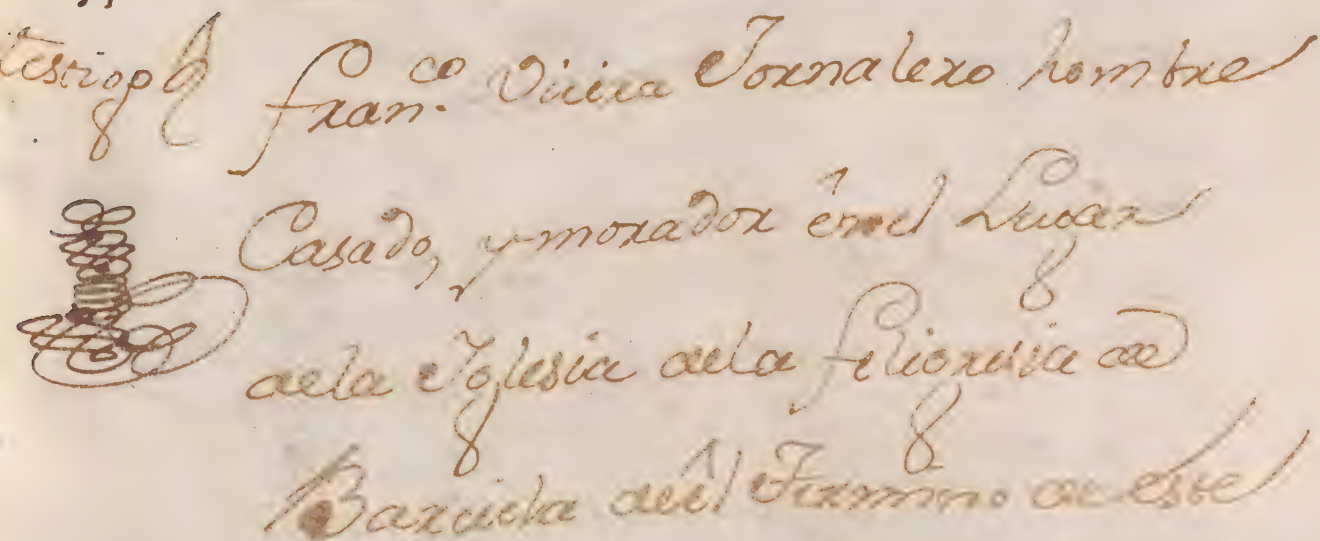 Testigo
fran.co Vieira Jornalero hombre
Casado, y morador ên el Lugar
dela Iglesia dela filigresia de
Barciela dêl Termino de este